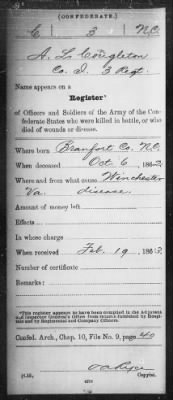 (CONFEDERATE.)
C 3 N.C.
A. L. Congleton
Co. I. 3 Regt.
Name appears on a
Register*
of Officers and Soldiers of the Army of the Con-
federate States who were killed in battle, or who
died of wounds or disease.
Where born Beaufort Co. N.C.
When deceased Oct. 6, 1862.
Where and from what cause Winchester
Va. disease.
Amount of money left
Effects
In whose charge
When received Feb. 19, 1863.
Number of certificate
Remarks:
*This register appears to have been compiled in the Adjutant
and Inspector General's Office from returns furnished by Hospi-
tals and by Regimental and Company Officers.
Confed. Arch., Chap. 10, File No. 9, page 40
Copyist.